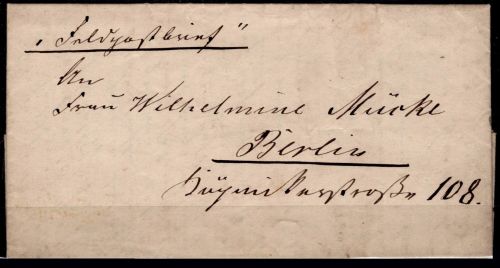 „Feldpostbrief"
An
Frau Wilhelmine Mücke
Berlin
Köpnikerstraße 108.